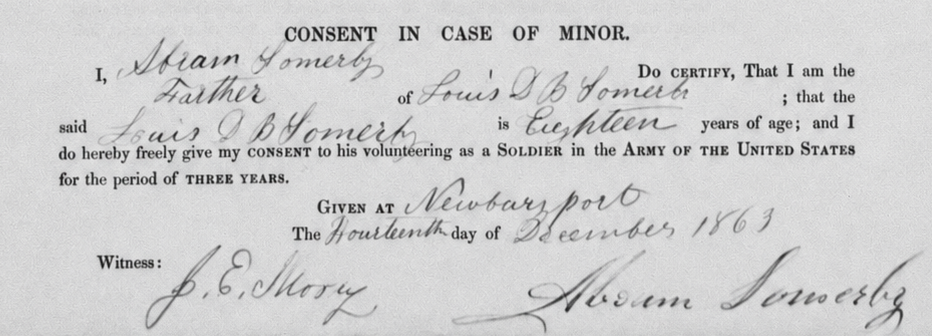 CONSENT IN CASE OF MINOR.
I, Abram Somerby Do CERTIFY, That I am the
Farther of Louis D B Somerby ; that the
said Louis D B Somerby is Eighteen years of age; and I
do hereby freely give my CONSENT to his volunteering as a SOLDIER in the ARMY OF THE UNITED STATES
for the period of THREE YEARS.
GIVEN AT Newburyport
The Fourteenth day of December 1863
Witness:
J. E. Abram Somerby